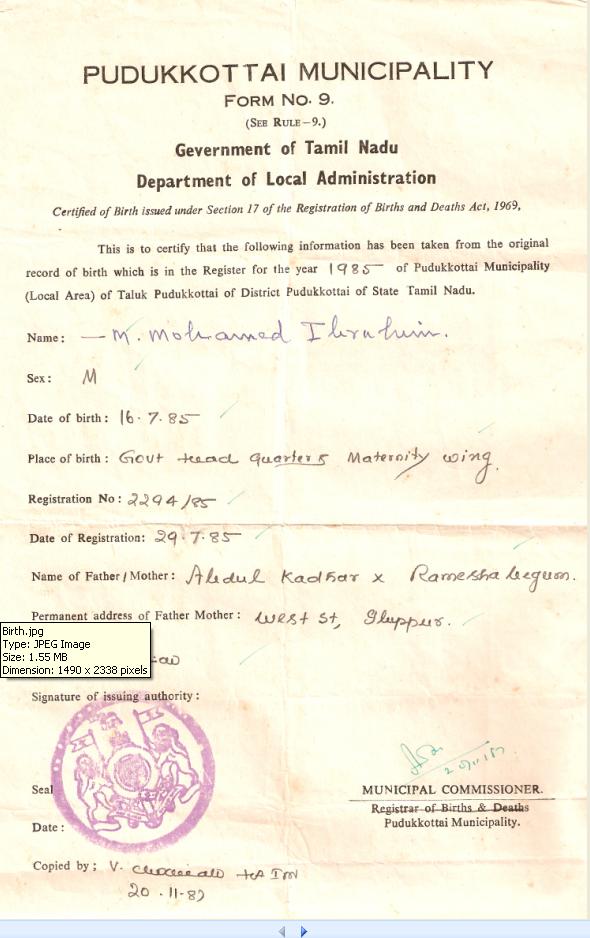 PUDUKKOTTAI MUNICIPALITY
FORM NO. 9.
(SEE RULE-9.)
Gevernment of Tamil Nadu
Department of Local Administration
Certified of Birth issued under Section 17 of the Registration of Births and Deaths Act, 1969,
This is to certify that the following information has been taken from the original
record of birth which is in the Register for the year 1985 of Pudukkottai Municipality
(Local Area) of Taluk Pudukkottai of District Pudukkottai of State Tamil Nadu.
Name: — M. Mohamed Ibrahim.
Sex: M
Date of birth: 16.7.85
Place of birth: Govt Head Quarters Maternity wing.
Registration No: 2294/85
Date of Registration: 29.7.85
Name of Father/Mother: Abdul Kadhar x Ramesha begum.
Permanent address of Father Mother: West St,
Birth.jpg
Type: JPEG Image
Size: 1.55 MB
Dimension: 1490 x 2338 pixels
Signature of issuing authority:
Seal
MUNICIPAL COMMISSIONER.
Registrar of Births & Deaths
Date:
Pudukkottai Municipality.
Copied by; V.
20.11-87